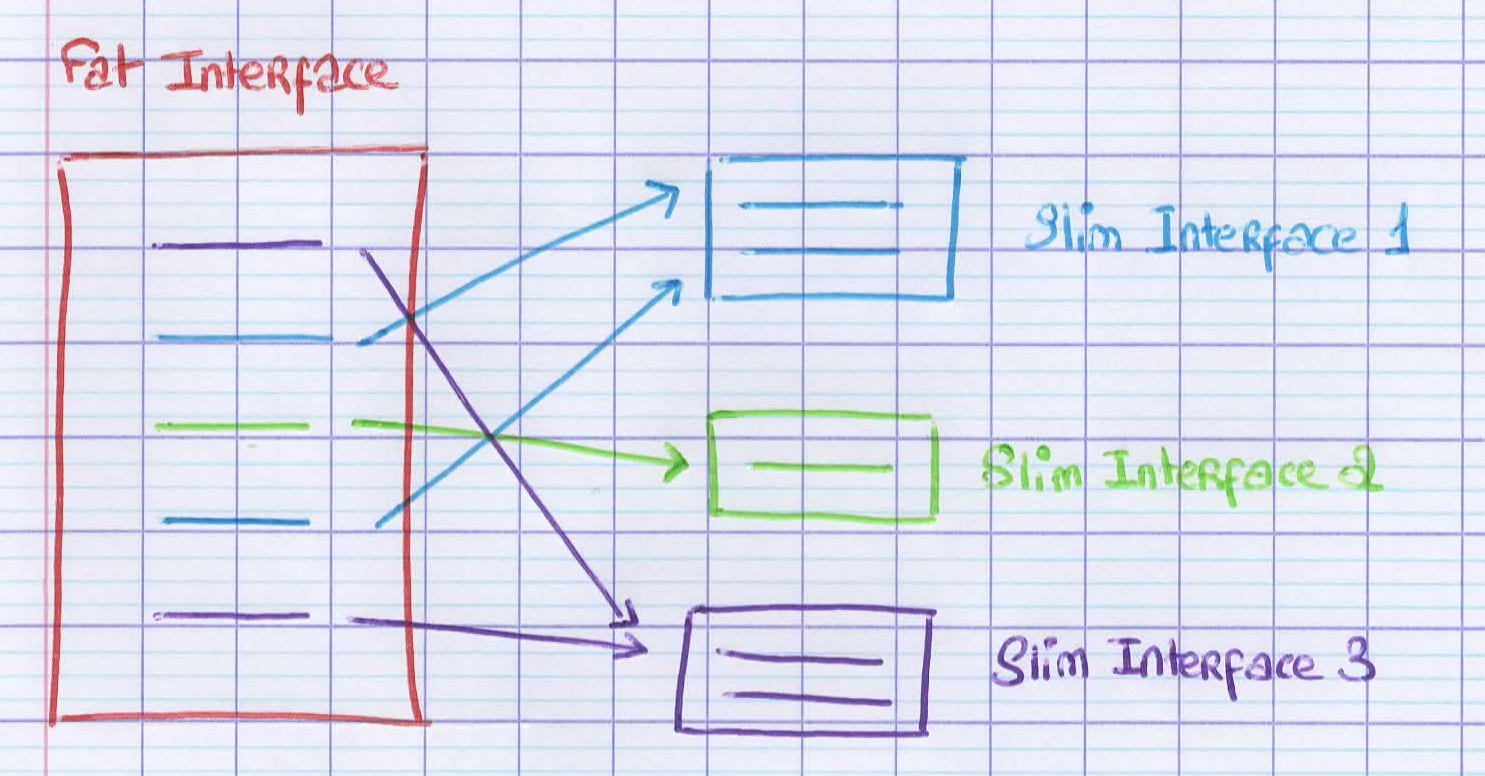 Fat Interface
Slim Interface 1
Slim Interface 2
Slim Interface 3